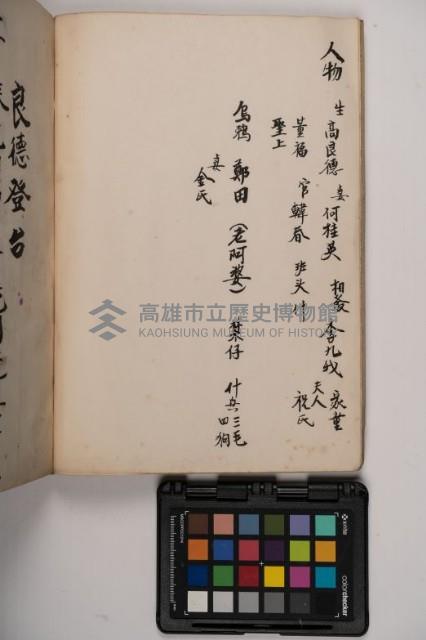 人物 生 高良德 妻 何桂英 相爺 李九成 家董
夫人 祝氏
董福 官 韓春 班头
聖上
烏鴉 鄭田 (老阿婆) 葉仔 什兵 三毛 四狗
妻 金氏
良德登台
高雄市立歷史博物館
KAOHSIUNG MUSEUM OF HISTORY
colorchecker